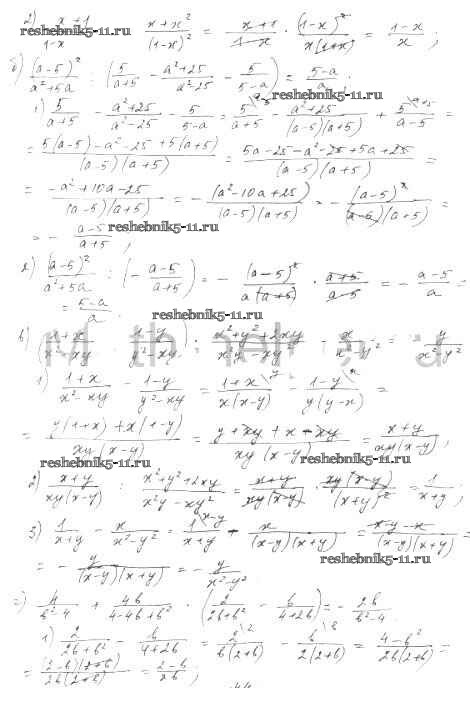 2) x+1/1-x : x+x²/(1-x)² = x+1/1-x · (1-x)²/x(1+x) = 1-x/x ;
reshebnik5-11.ru reshebnik5-11.ru
б) (a-5)²/a²+5a : (5/a+5 - a²+25/a²-25 - 5/5-a) = 5-a/a .
reshebnik5-11.ru
1) 5/a+5 - a²+25/a²-25 - 5/5-a = 5/a+5 - a²+25/(a-5)(a+5) + 5/a-5 =
= 5(a-5)-a²-25+5(a+5)/(a-5)(a+5) = 5a-25-a²-25+5a+25/(a-5)(a+5) =
= -a²+10a-25/(a-5)(a+5) = - (a²-10a+25)/(a-5)(a+5) = - (a-5)²/(a-5)(a+5) =
= - a-5/a+5 ;
reshebnik5-11.ru
2) (a-5)²/a²+5a : (- a-5/a+5) = - (a-5)²/a(a+5) · a+5/a-5 = - a-5/a =
= 5-a/a .
reshebnik5-11.ru
в) (1+x/x²-xy - 1-y/y²-xy) : x²+y²+2xy/x²y-xy² - x/x²-y² = - y/x²-y²
1) 1+x/x²-xy - 1-y/y²-xy = 1+x/x(x-y) - 1-y/y(y-x) =
= y(1+x)+x(1-y)/xy(x-y) = y+xy+x-xy/xy(x-y) = x+y/xy(x-y) ;
reshebnik5-11.ru reshebnik5-11.ru
2) x+y/xy(x-y) : x²+y²+2xy/x²y-xy² = x+y/xy(x-y) · xy(x-y)/(x+y)² = 1/x+y ;
reshebnik5-11.ru
3) 1/x+y - x/x²-y² = 1/x+y - x/(x-y)(x+y) = x-y-x/(x-y)(x+y) =
reshebnik5-11.ru
= - y/(x-y)(x+y) = - y/x²-y²
г) 4/b²-4 + 4b/4-4b+b² · (2/2b+b² - b/4+2b) = - 2b/b²-4 .
1) 2/2b+b² - b/4+2b = 2/b(2+b) - b/2(2+b) = 4-b²/2b(2+b) =
= (2-b)(2+b)/2b(2+b) = 2-b/2b ;